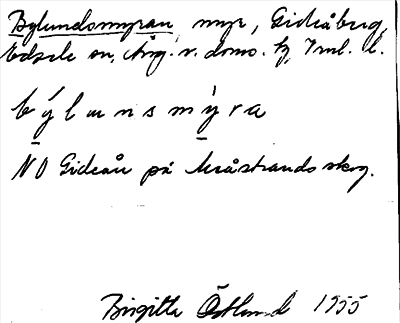 Bylundsmyran, myr, Gideåberg,
Edsele sn, Ång. v. doms. tg, Jml. l.
býlunsmýra
NO Gideån på Kråstrands skog.
Birgitta Östlund 1955